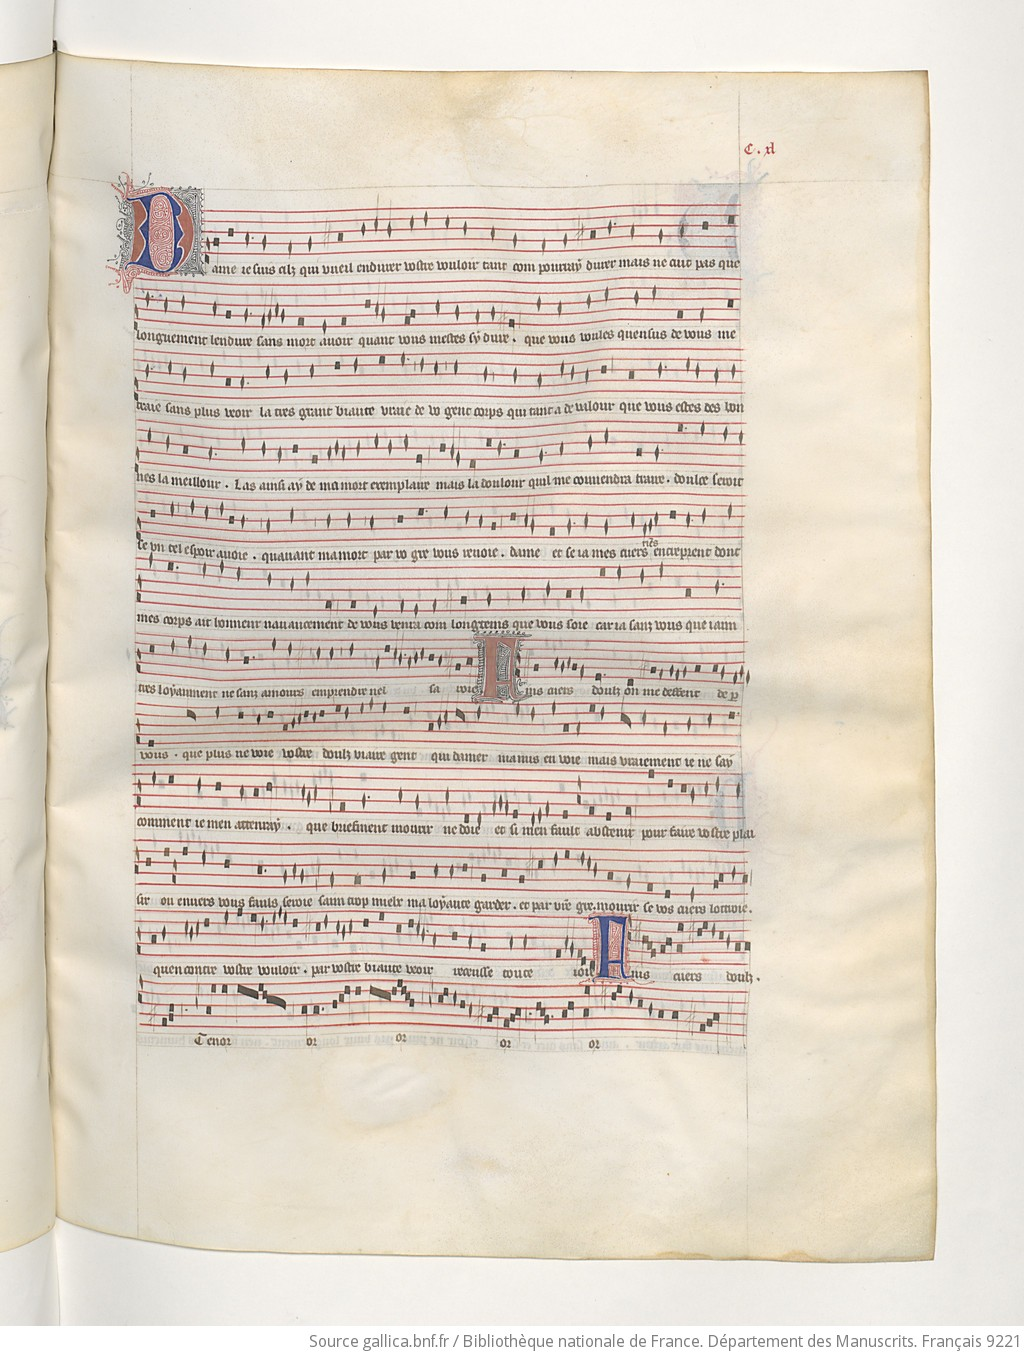 C. xl
Dame ie sui cilz qui vueil endurer vostre vouloir tant com pourray durer mais ne cuit pas que
longuement lendure sans mort auoir quant vous mestes sy dure. que vous voules quensus de vous me
traie sans plus veoir la tres grant biaute vraie de vo gent corps qui tant a de valour que vous estes des bon
nes la meillour. Las ainsi ay de ma mort exemplaire mais la doulour quil me conuendra traire. doulce seroit
se vn tel espoir auoie. quauant ma mort par vo gre vous reuoie. dame et se ia mes cuers riens entreprent dont
mes corps ait honneur nauancement de vous venra com longtemps que vous soie car ia sanz vous que iaim
tres loyaument ne sanz amours emprendre nel sa roie Fins cuers doulz on me deffent de p
vous. que plus ne voie vostre doulz viaire gent qui damer ma mis en voie mais vraiement ie ne say
comment ie men attenray. que briefment mourir ne doie et si men fault abstenir pour faire vostre plai
sir ou enuers vous fauls seroie saim trop mielx ma loyaute garder. et par vre gre mourir se vos cuers lottroie.
quencontre vostre vouloir. par vostre biaute veoir receusse toute ioie Fins cuers doulz.
Tenor or or or or
Source gallica.bnf.fr / Bibliothèque nationale de France. Département des Manuscrits. Français 9221